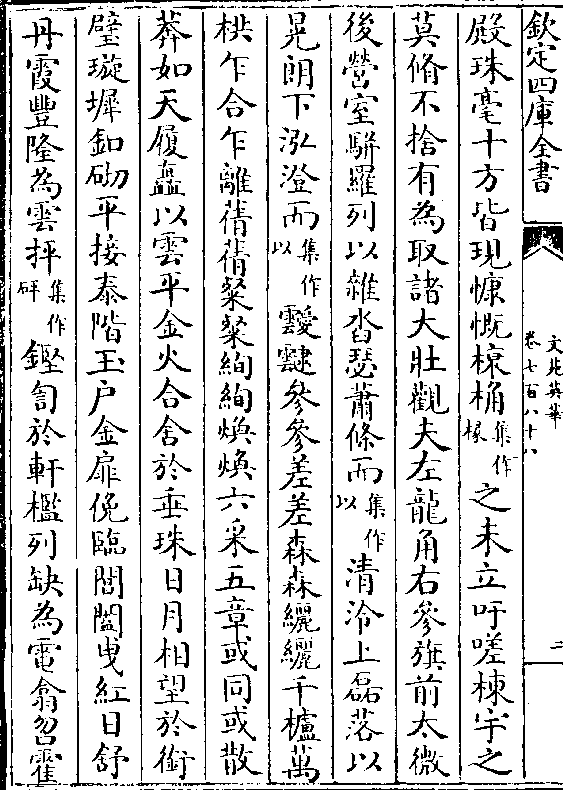 欽定四庫全書
文苑英華
卷七百八十八
二
殿珠毫十方皆現慷慨榱桷集作椽之未立吁嗟棟宇之
莫脩不捨有為取諸大壯觀夫左龍角右參旗前太微
後營室駢羅列以雜沓瑟蕭條而集作以清泠上磊落以
晃朗下泓澄而集作以靉靆參參差差森森纚纚千櫨萬
栱乍合乍離蒨蒨粲粲絢絢煥煥六采五章或同或散
莽如天履矗以雲平金火合舍於垂珠日月相望於銜
璧璇墀釦砌平接泰階玉户金扉俛臨閶闔曵紅日舒
丹霞豐隆為雲抨集作砰鏗訇於軒檻列缺為電翕曶霍